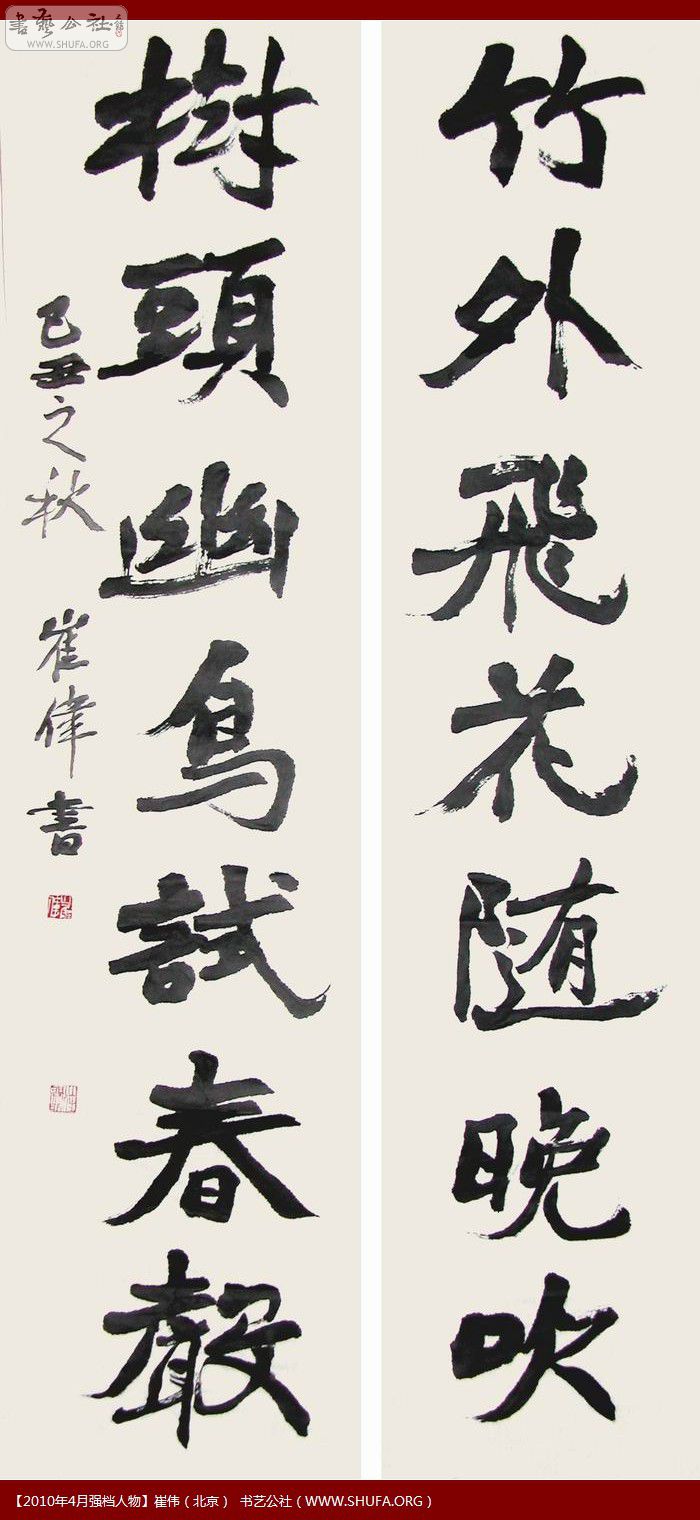 書藝公社
WWW.SHUFA.ORG
竹外飛花随晚吹
樹頭幽鳥試春聲
己丑之秋
崔偉書
【2010年4月强档人物】崔伟（北京） 书艺公社（WWW.SHUFA.ORG）